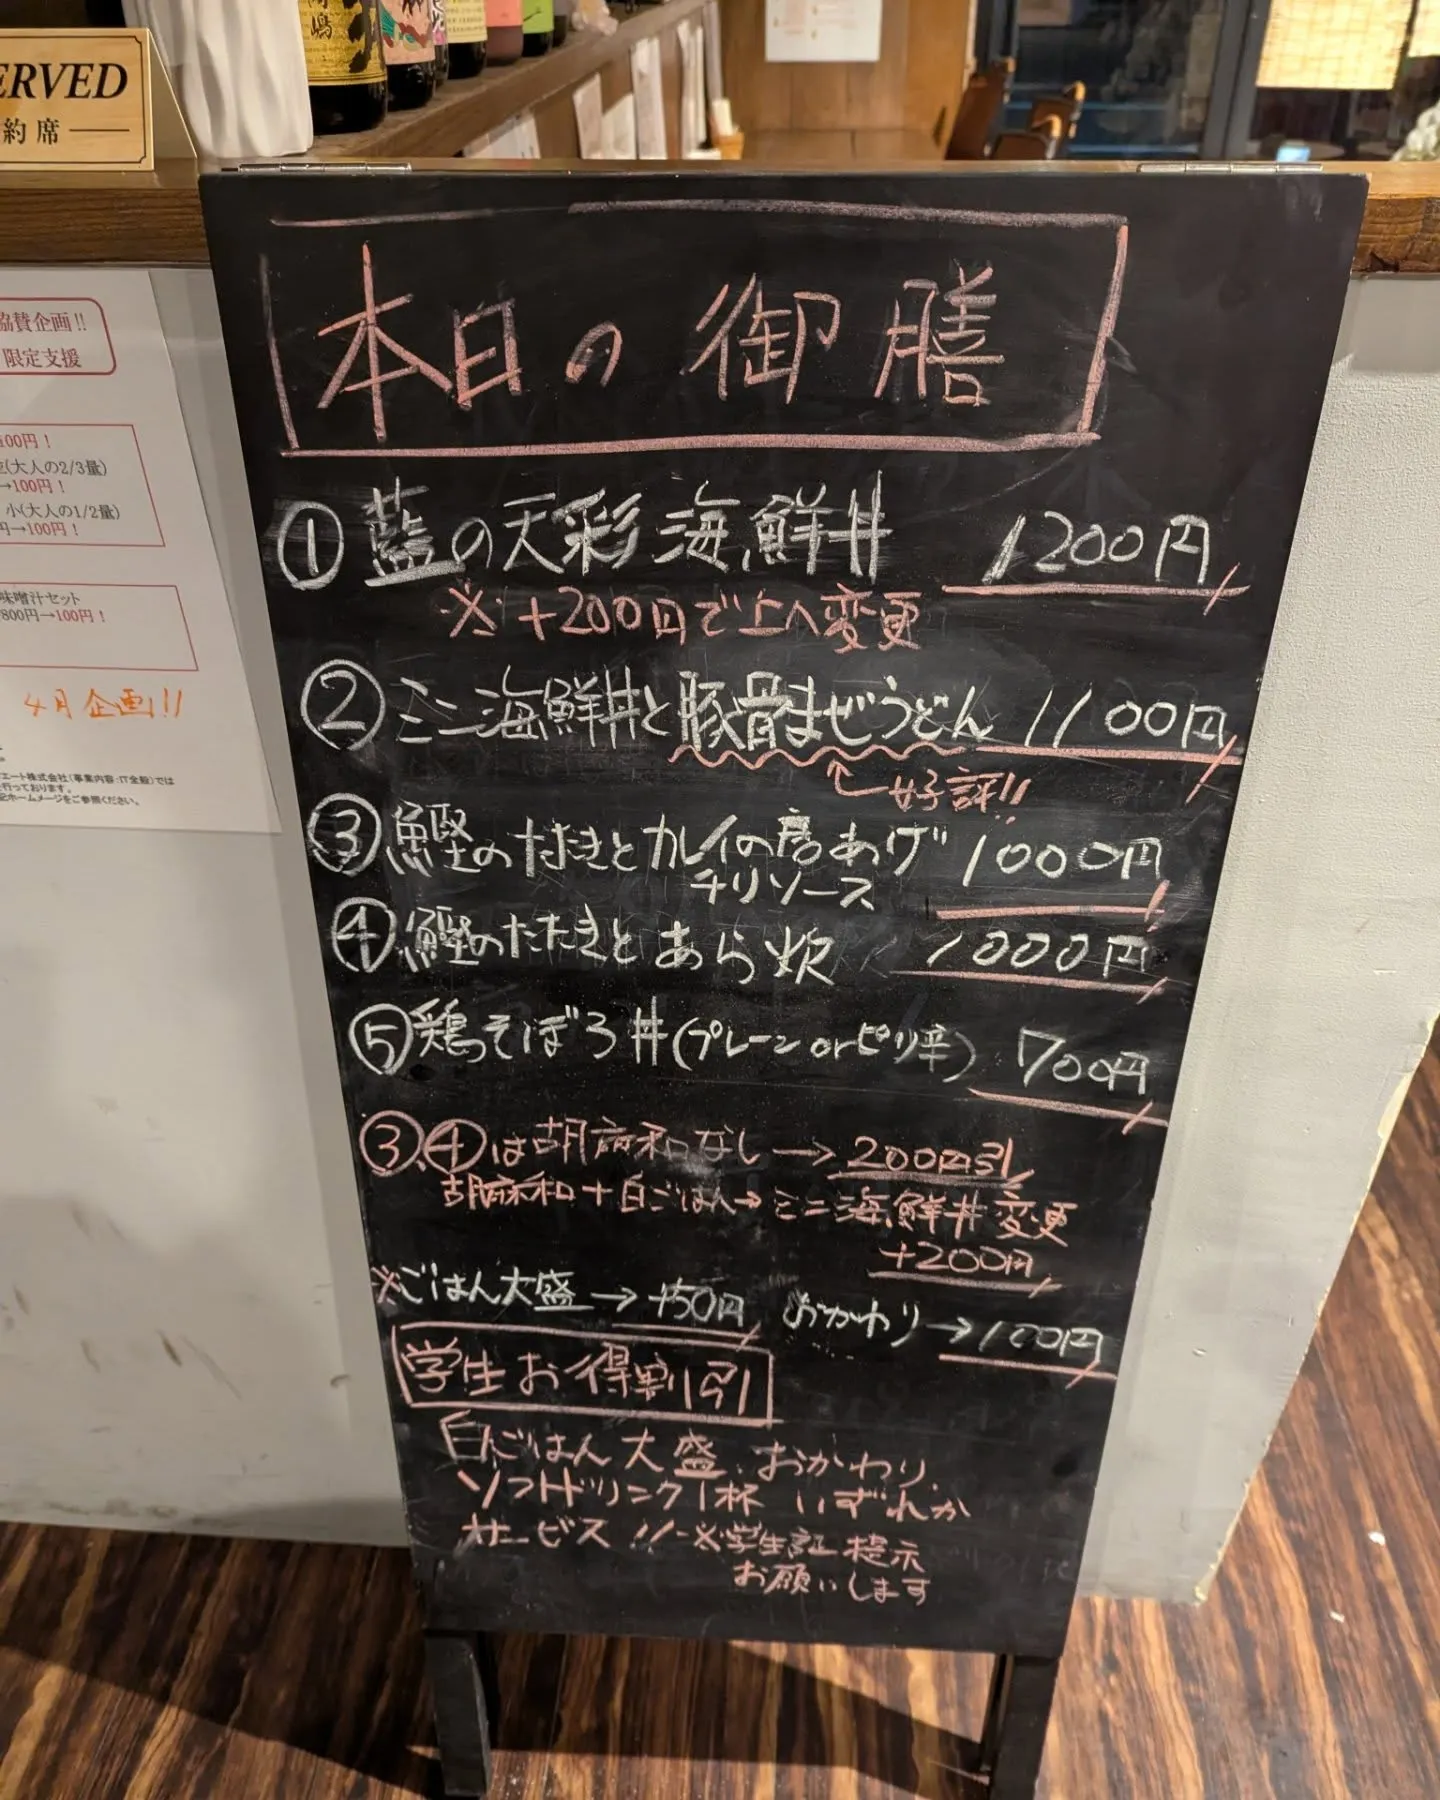 ERVED
約席
協賛企画!!
限定支援
100円!
(大人の2/3量)
→100円!
小(大人の1/2量)
円→100円!
味噌汁セット
800円→100円!
4月企画!!
エート株式会社(事業内容:IT全般)では
行っております。
記ホームページをご参照ください。
本日の御膳
①藍の天彩海鮮丼 1200円
※+200円で上へ変更
②ミニ海鮮丼と豚骨まぜうどん 1100円
好評!!
③鰹のたたきとカレイの唐あげ 1000円
チリソース
④鰹のたたきとあら炊 1000円
⑤鶏そぼろ丼(プレーンorピリ辛) 700円
③、④は胡麻和なし→200円引
胡麻和+白ごはん→ミニ海鮮丼変更
+200円
※ごはん大盛→+50円 おかわり→100円
学生お得割引
白ごはん大盛、おかわり、
ソフトドリンク1杯 いずれか
サービス!! ※学生証提示
お願いします